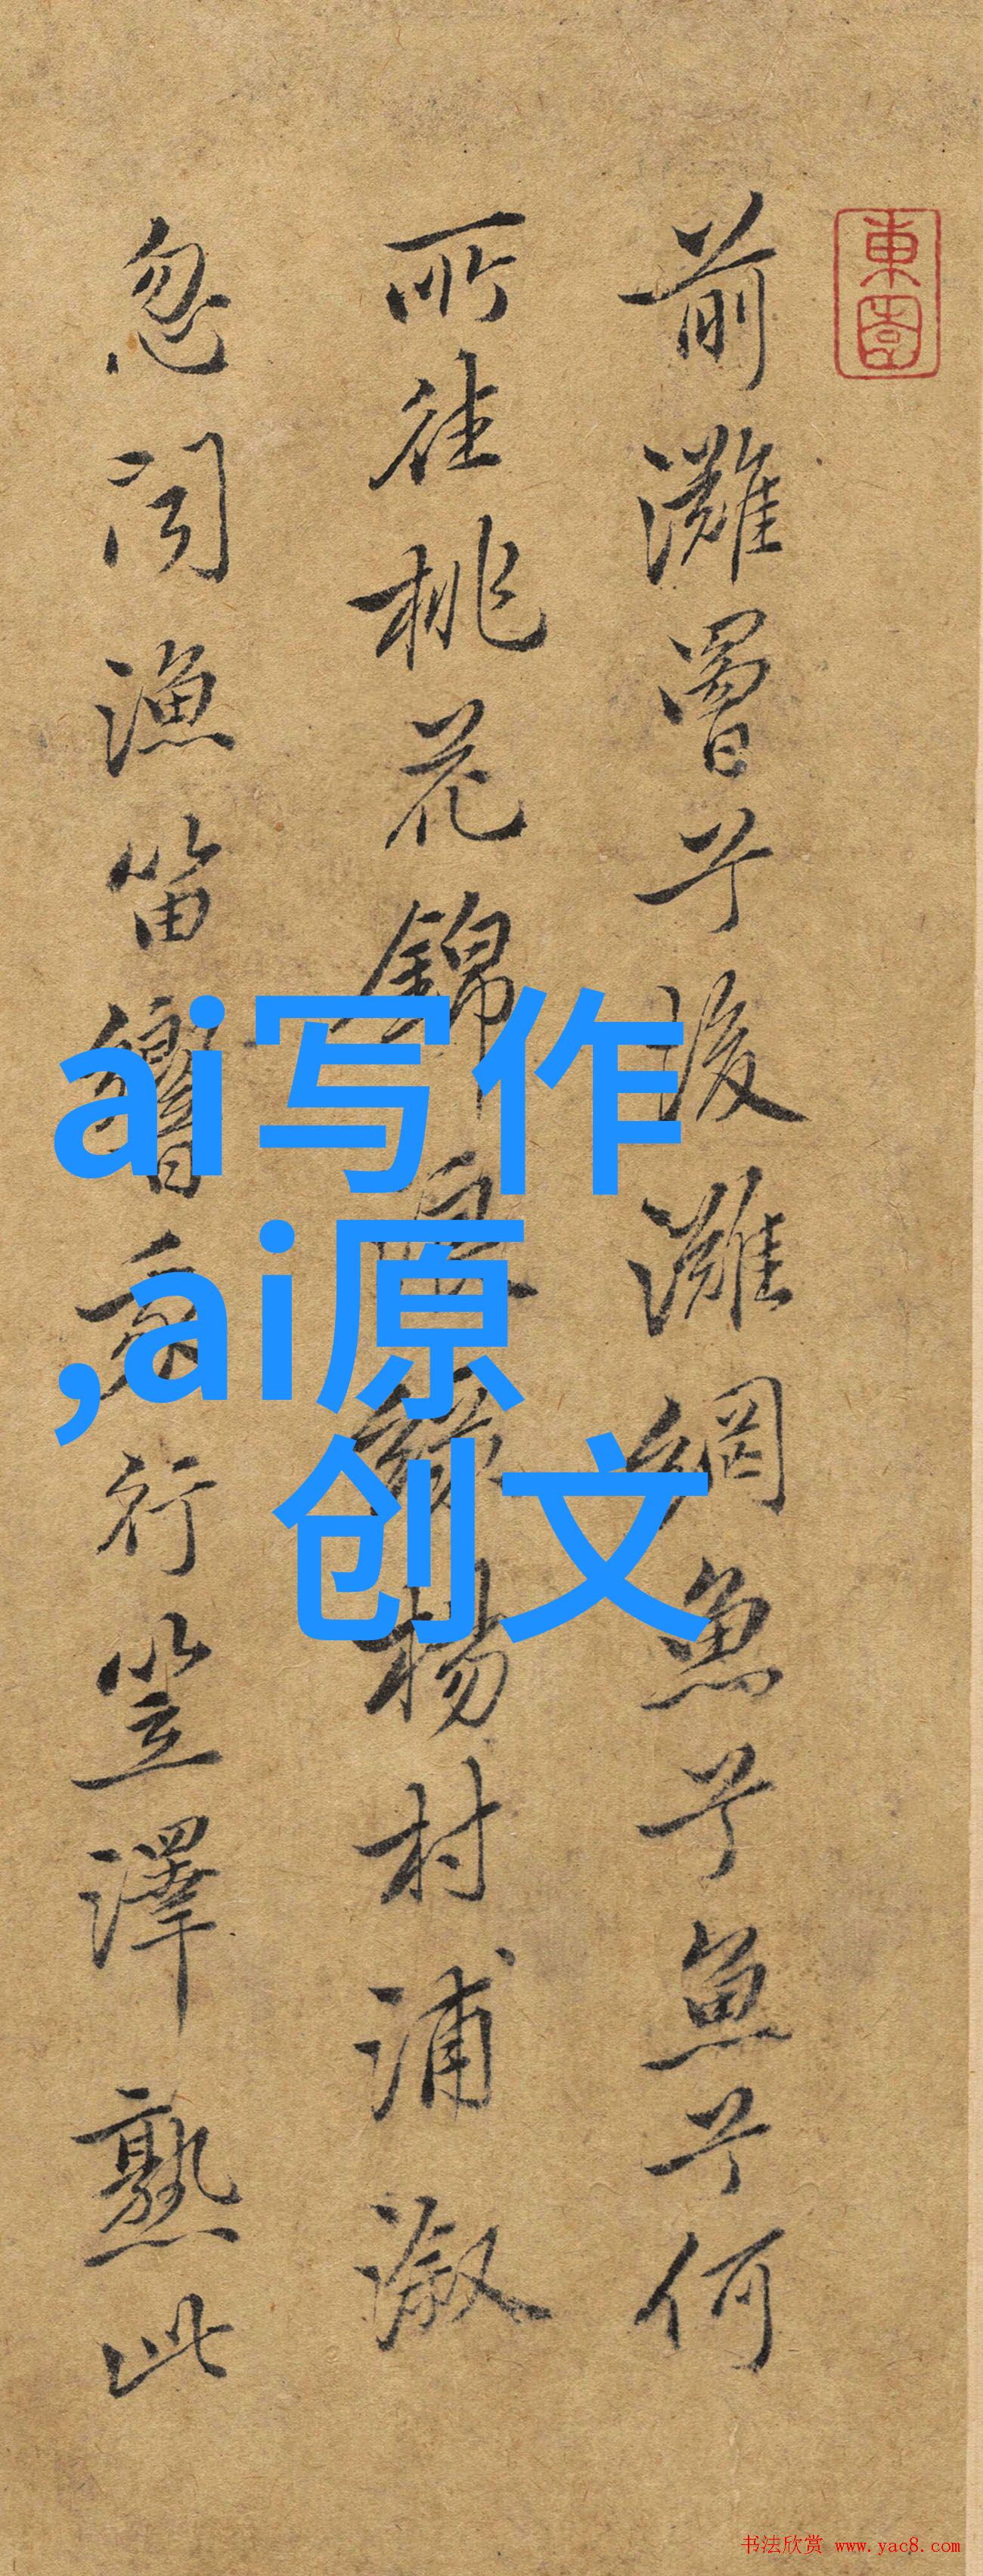 東園
前灘罾兮後灘網魚兮魚兮何
所往桃花錦浪綠楊村浦溆
忽聞漁笛響行笠澤熟此
ai写作
,ai原
创文
书法欣赏 www.yac8.com